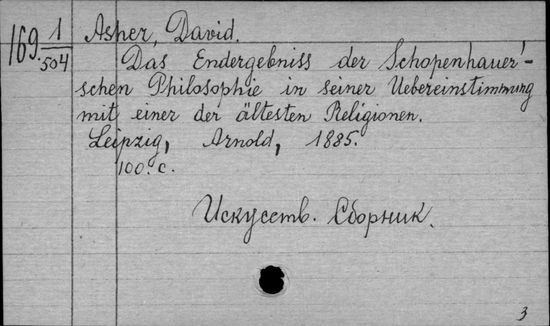 169. 1/504
Asher, David.
Das Endergebniss der Schopenhauer'-
schen Philosophie in seiner Uebereinstimmung
mit einer der ältesten Religionen.
Leipzig, Arnold, 1885.
100. c.
Искусств. Сборник.
3